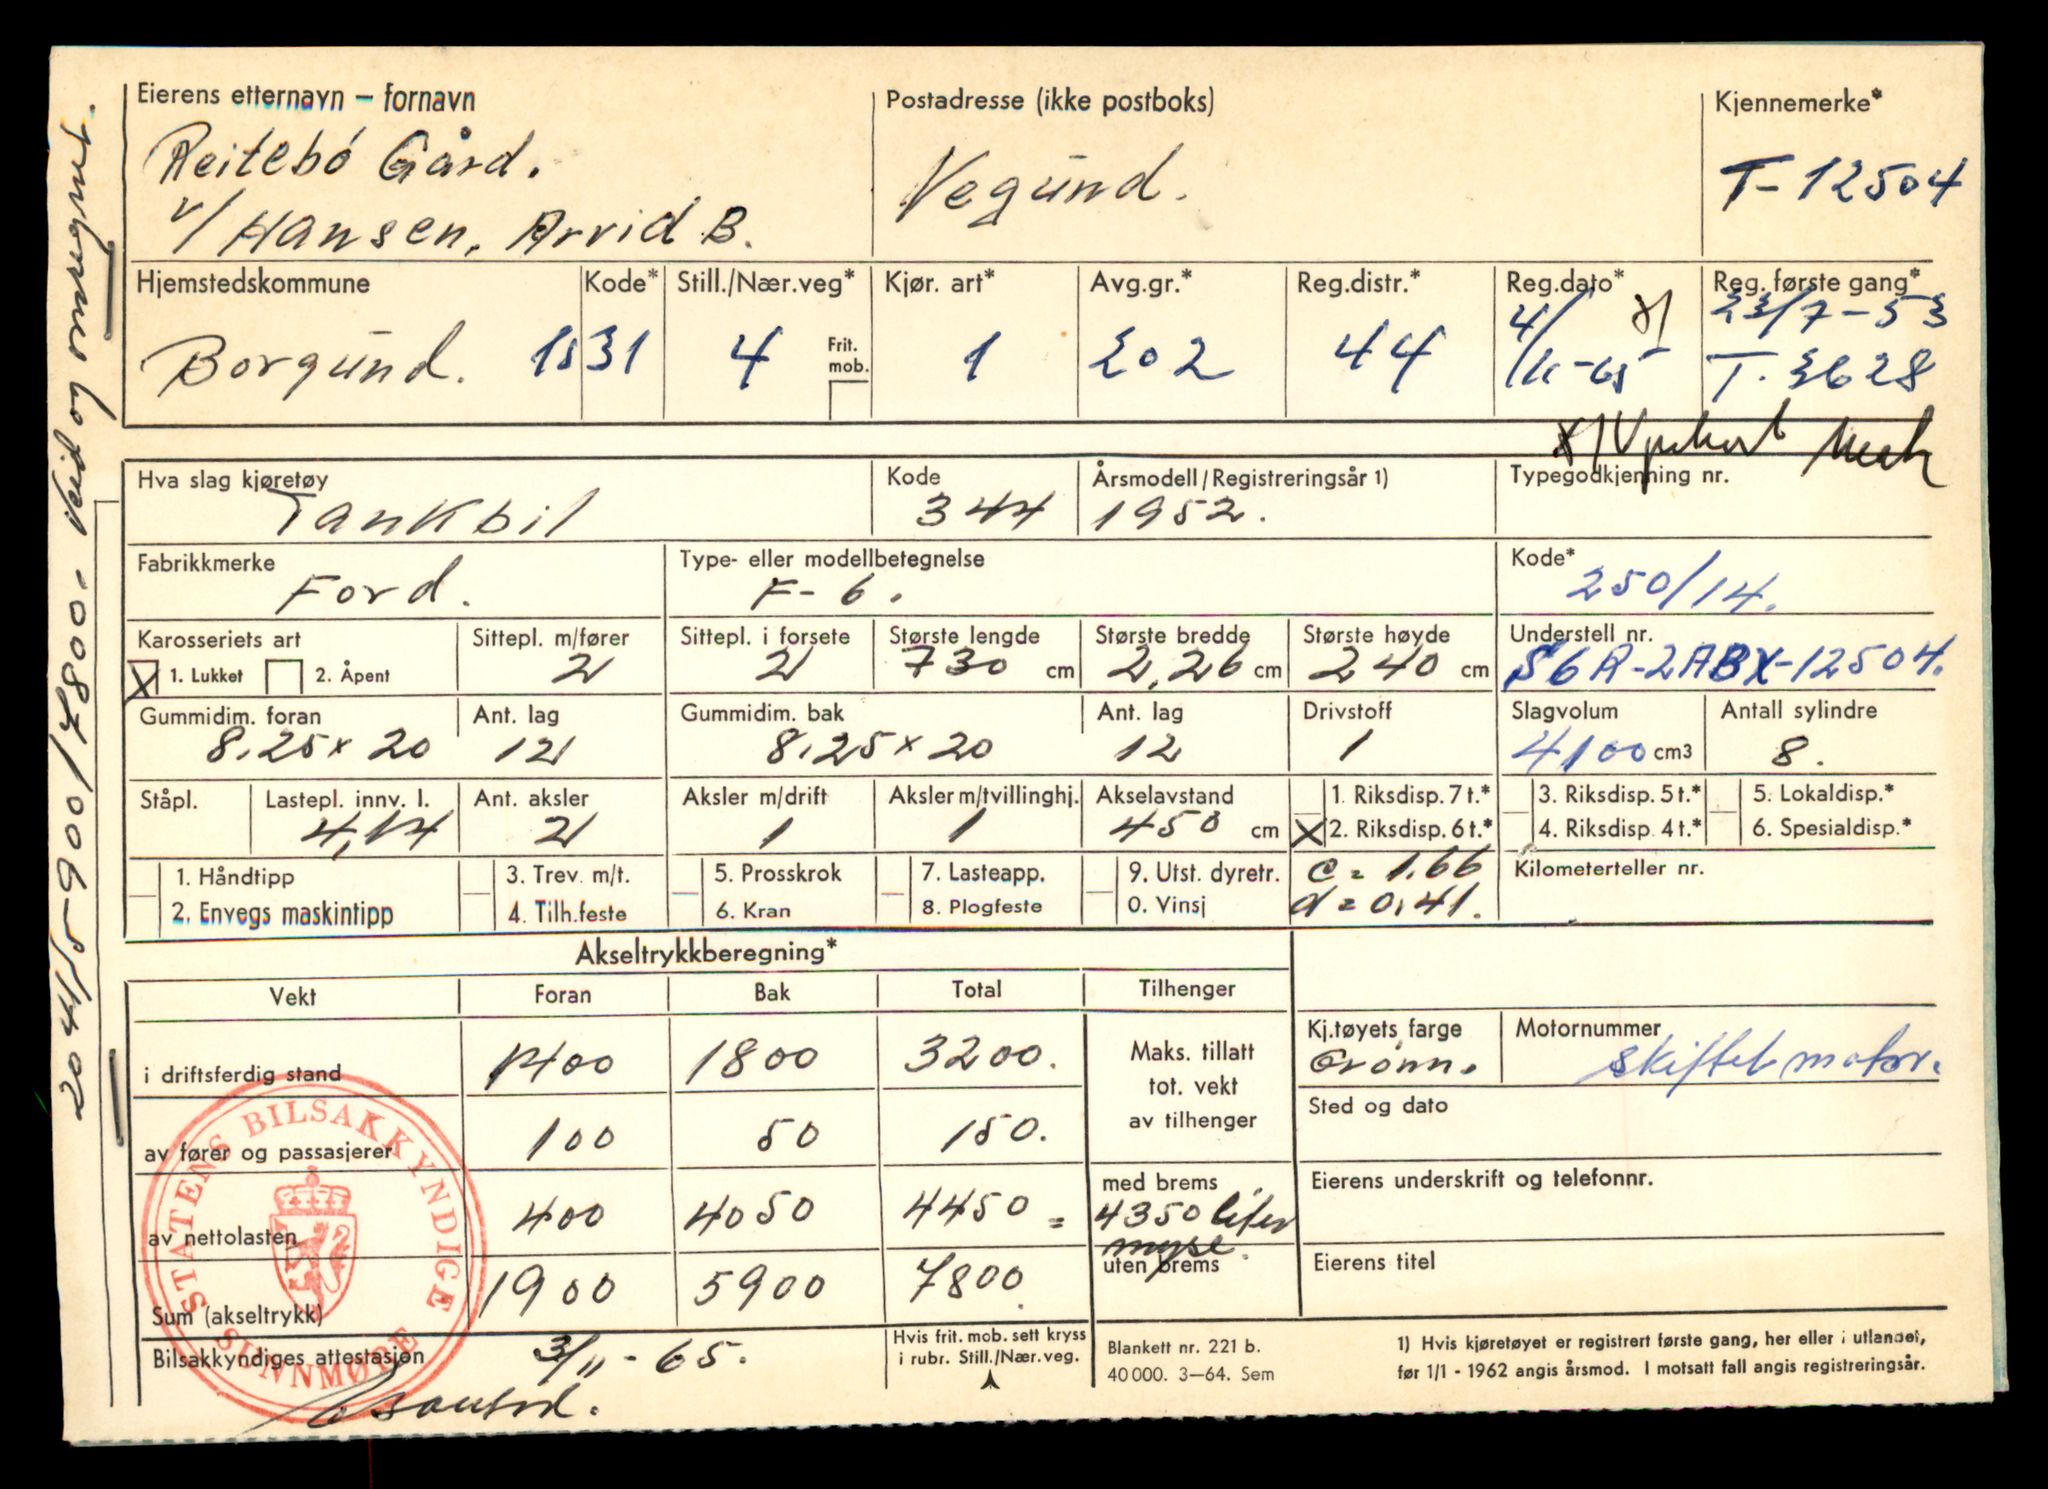 Eierens etternavn – fornavn
Reitebø Gård.
v/ Hansen, Arvid B.
Postadresse (ikke postboks)
Vegund.
Kjennemerke*
T-12504
Hjemstedskommune
Borgund.
Kode*
1531
Still./Nær.veg*
4
Frit. mob.
Kjør. art*
1
Avg.gr.*
202
Reg.distr.*
44
Reg.dato*
4/11-65 x/
Reg. første gang*
23/7-53
T. 3628
x/
Hva slag kjøretøy
Tankbil
Kode
344
Årsmodell/Registreringsår 1)
1952.
Typegodkjenning nr.
Fabrikkmerke
Ford.
Type- eller modellbetegnelse
F-6.
Kode*
250/14.
Karosseriets art
X 1. Lukket 2. Åpent
Sittepl. m/fører
2
Sittepl. i forsete
2
Største lengde
730 cm
Største bredde
2,26 cm
Største høyde
240 cm
Understell nr.
S6R-2ABX-12504.
Gummidim. foran
8.25 x 20
Ant. lag
12
Gummidim. bak
8.25 x 20
Ant. lag
12
Drivstoff
1
Slagvolum
4100 cm3
Antall sylindre
8.
Ståpl.
Lastepl. innv. l.
4,14
Ant. aksler
2
Aksler m/drift
1
Aksler m/tvillinghj.
1
Akselavstand
450 cm
1. Riksdisp. 7 t.*
X 2. Riksdisp. 6 t.*
3. Riksdisp. 5 t.*
4. Riksdisp. 4 t.*
5. Lokaldisp.*
6. Spesialdisp.*
1. Håndtipp
2. Envegs maskintipp
3. Trev. m/t.
4. Tilh.feste
5. Prosskrok
6. Kran
7. Lasteapp.
8. Plogfeste
9. Utst. dyretr.
0. Vinsj
c = 1.66
d = 0,41.
Kilometerteller nr.
Akseltrykkberegning*
Vekt Foran Bak Total Tilhenger
i driftsferdig stand 1400 1800 3200.
av fører og passasjerer 100 50 150.
av nettolasten 400 4050 4450 =
Sum (akseltrykk) 1900 5900 7800.
Maks. tillatt
tot. vekt
av tilhenger
med brems
4350 liter
myse.
uten brems
Kj.tøyets farge
Grønn.
Motornummer
skiftet motor.
Sted og dato
Eierens underskrift og telefonnr.
Eierens titel
Bilsakkyndiges attestasjon
3/11-65.
Hvis frit. mob. sett kryss
i rubr. Still./Nær.veg.
Blankett nr. 221 b.
40 000. 3–64. Sem
1) Hvis kjøretøyet er registrert første gang, her eller i utlandet,
før 1/1 - 1962 angis årsmod. I motsatt fall angis registreringsår.
STATENS BILSAKKYNDIGE
SUNNMØRE